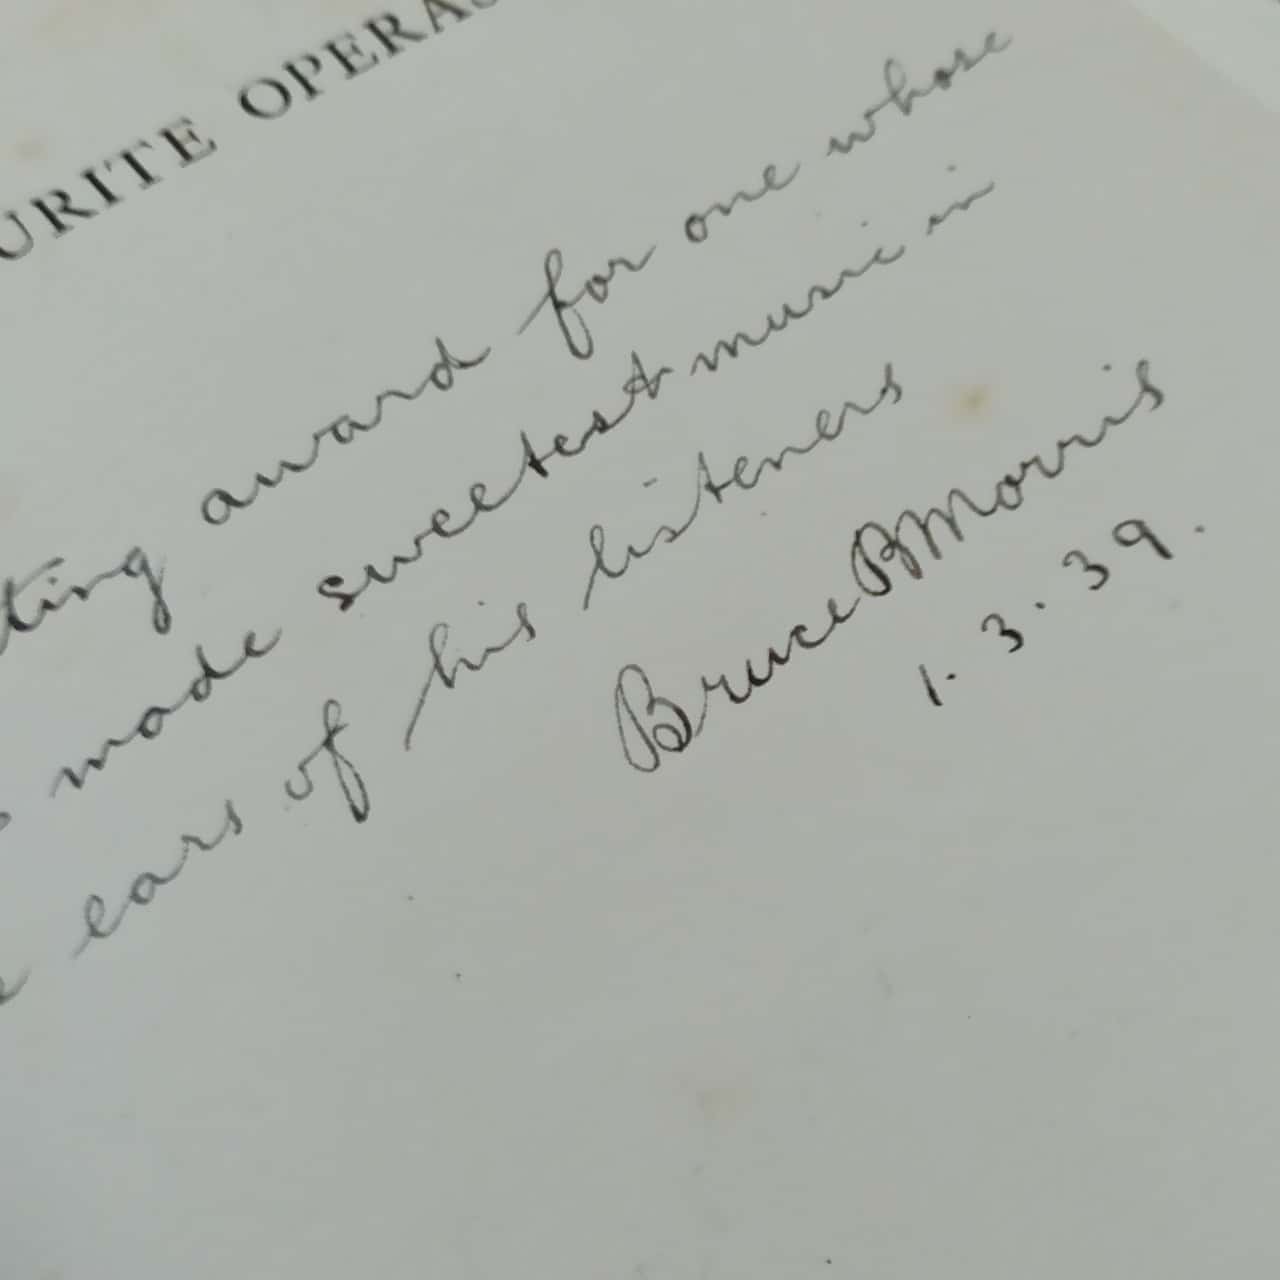 URITE OPERAS
ting award for one whose
made sweetest music in
ears of his listeners
Bruce B Morris
1.3.39.